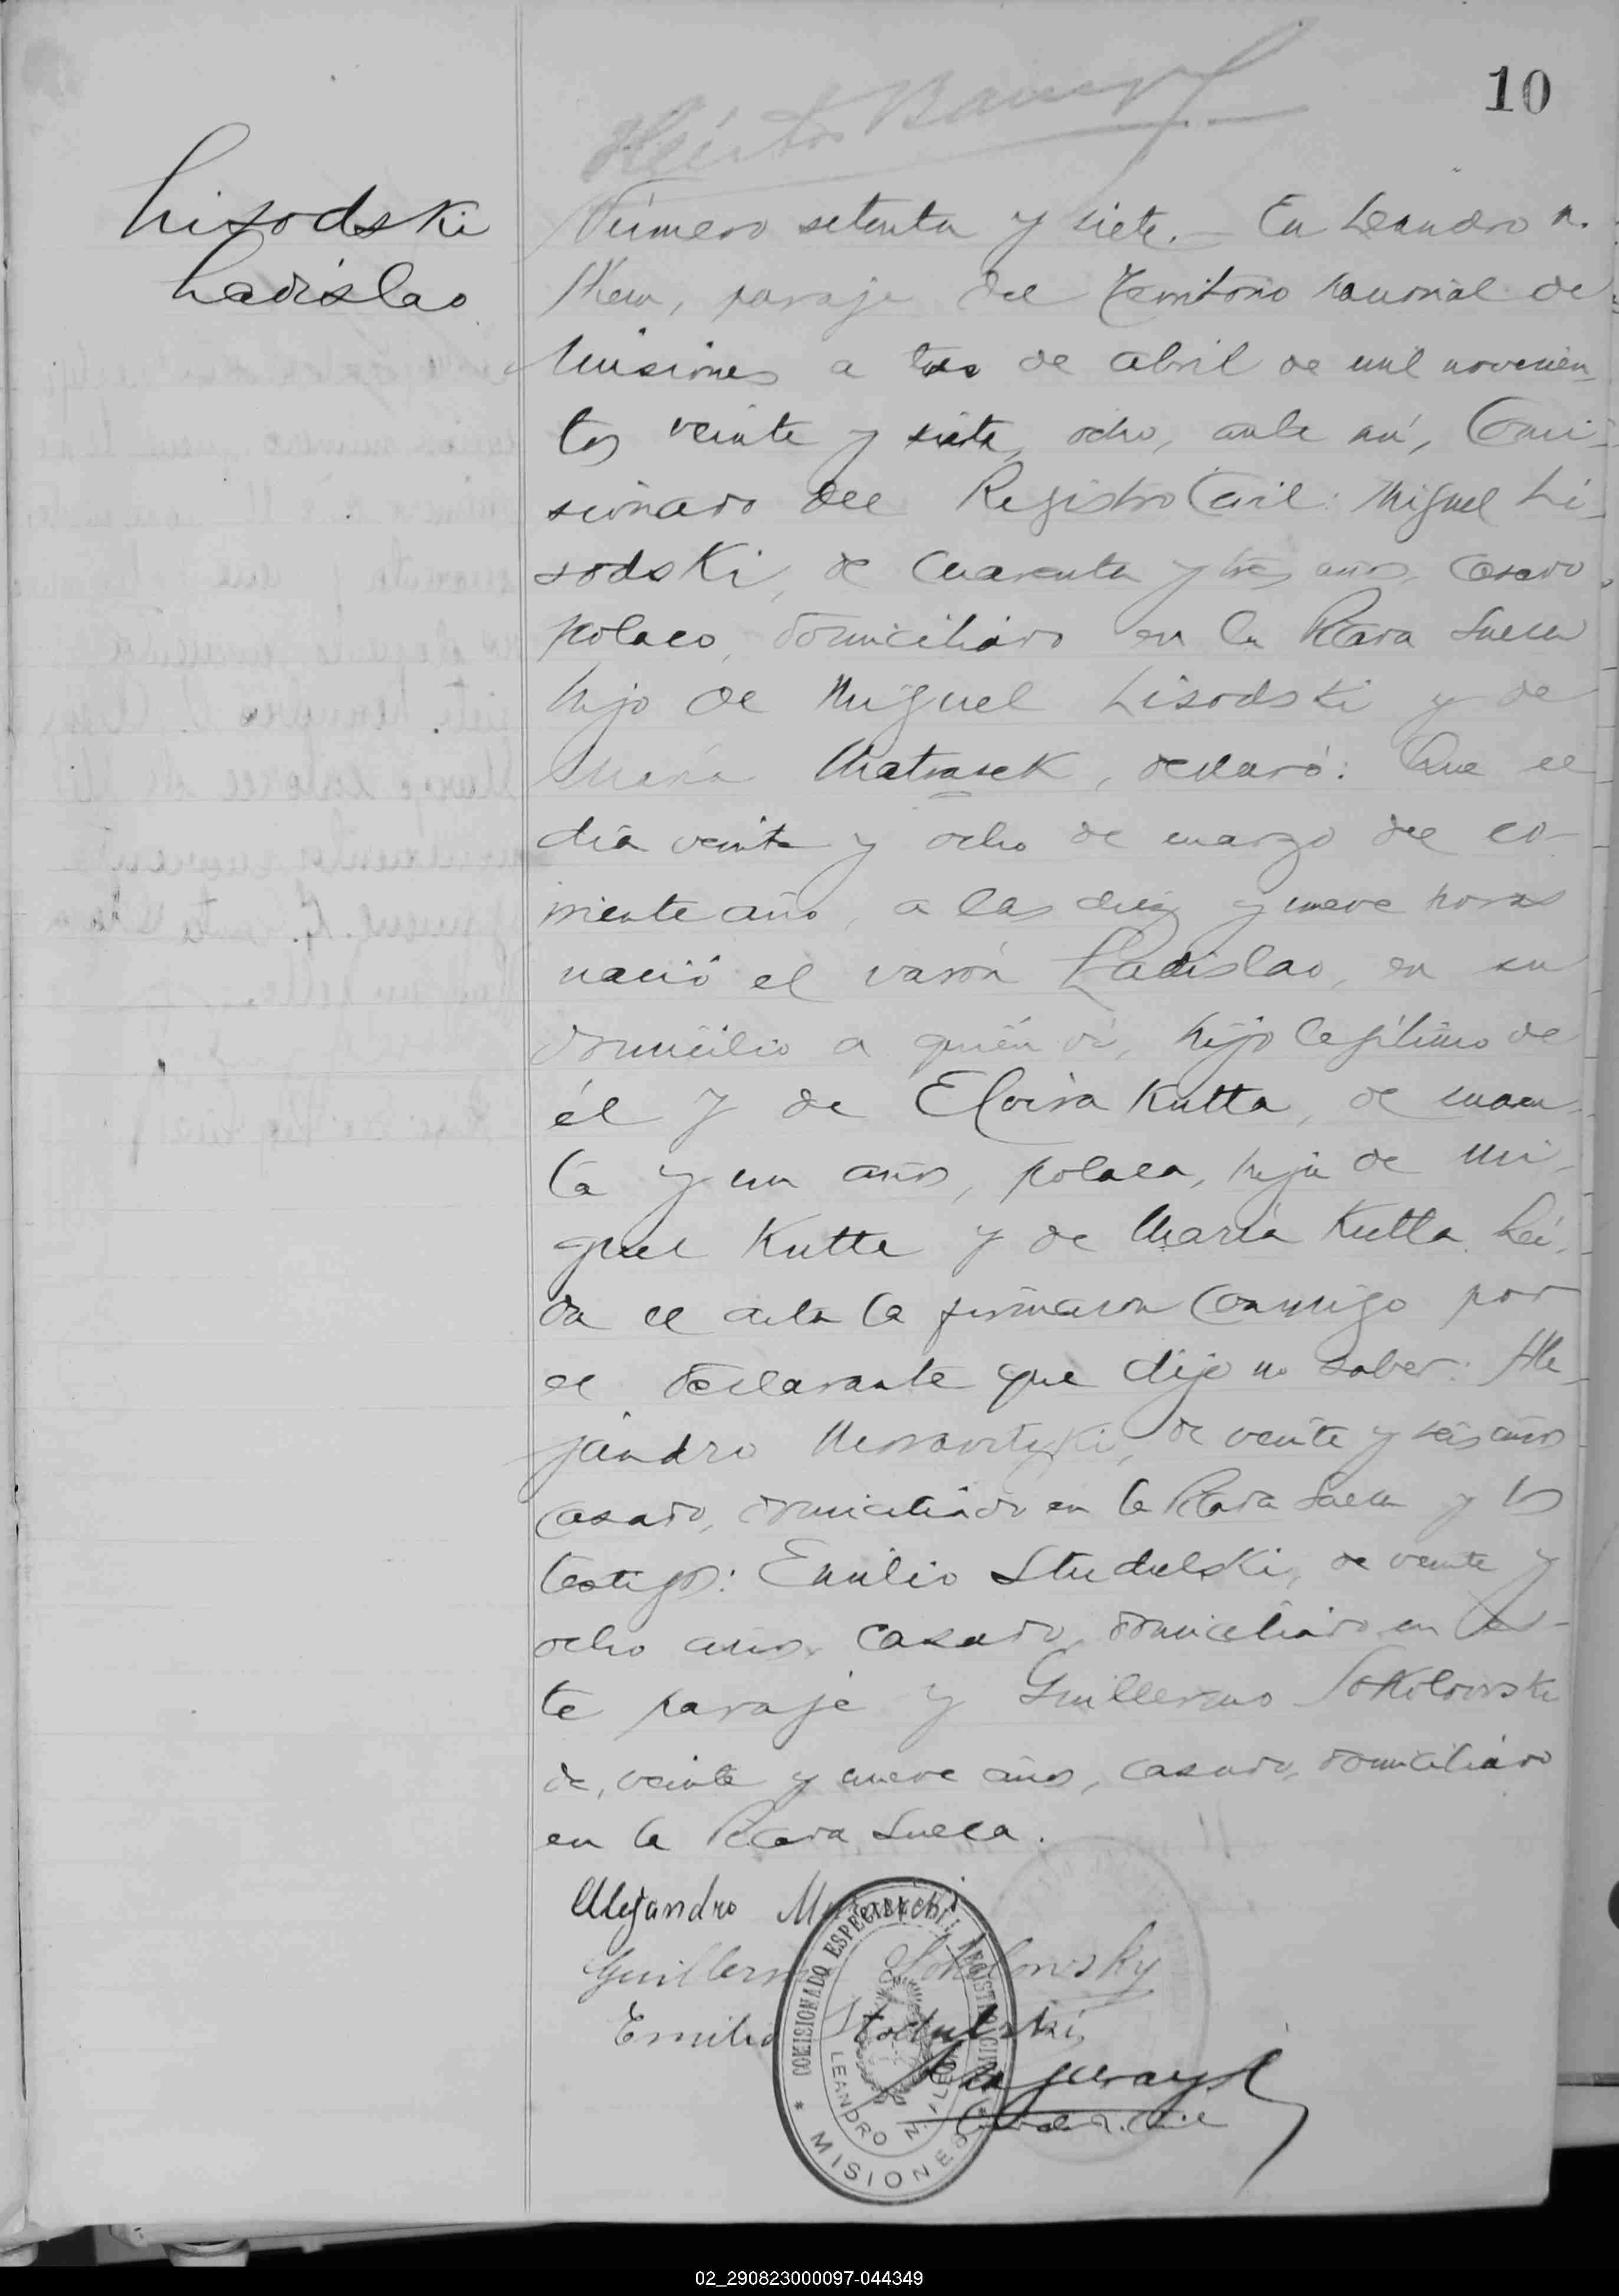 10
Lisodski
Ladislao
Número setenta y siete.- En Leandro N.
Alem, paraje del Territorio nacional de
Misiones a tres de abril de mil novecien-
tos veinte y siete, ocho, ante mí, Comi-
sionado del Registro Civil: Miguel Li-
sodski, de cuarenta y tres años, casado,
polaco, domiciliado en la Picada Sueca
hijo de Miguel Lisodski y de
María Matrasek, declaró: Que el
día veinte y ocho de marzo del co-
rriente año, a las diez y nueve horas
nació el varón Ladislao, en su
domicilio a quién ví, hijo legítimo de
él y de Eloisa Kutta, de cuaren-
ta y un años, polaca, hija de Mi-
guel Kutta y de María Kutta. Leí-
da el acta la firmaron conmigo por
el declarante que dijo no saber: Ale-
jandro de veinte y seis años
casado, domiciliado en la Picada Sueca y los
testigos: Emilio Studulski, de veinte y
ocho años, casado, domiciliado en es-
te paraje y Guillermo Sokolowski
de, veinte y nueve años, casado, domiciliado
en la Picada Sueca.
Alejandro
Guillermo Sokolowsky
Emilio Studulski
COMISIONADO ESPECIAL DEL REGISTRO CIVIL
LEANDRO N. ALEM
* MISIONES *
02_290823000097-044349